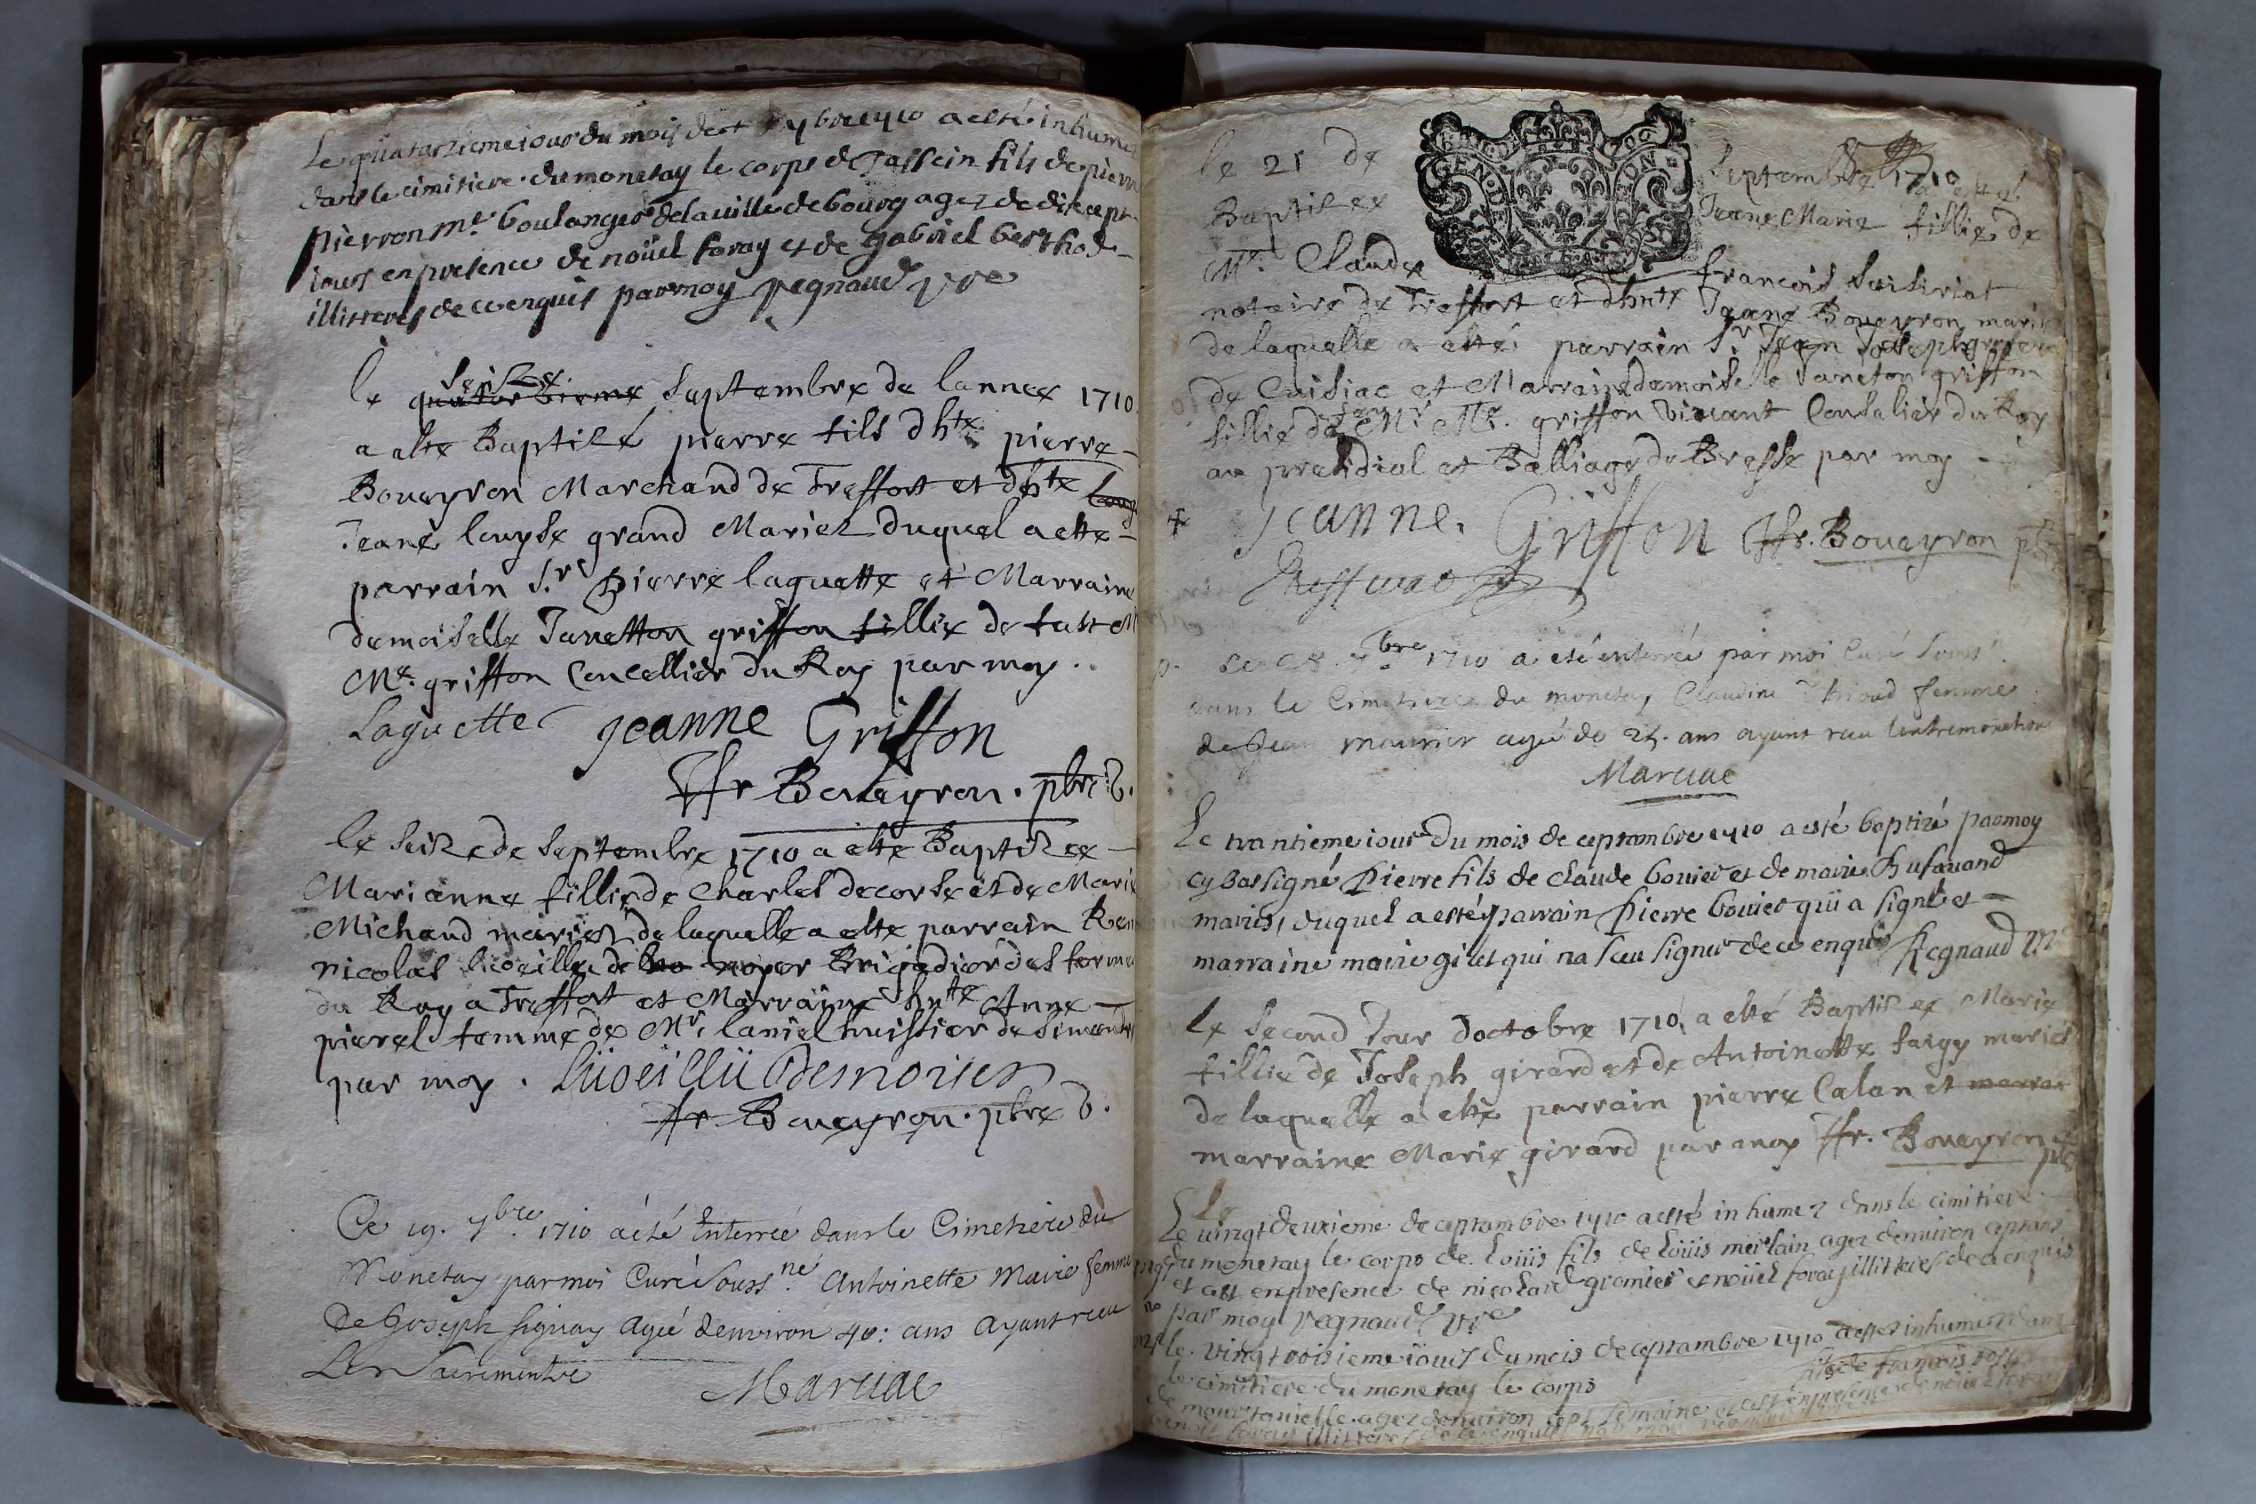 Le quatorzieme iour du mois de 7bre 1710 a esté inhumé
dans le cimitiere du monetay le corps de fils de pierre
pierron me boulanger de la ville de bourg agez de dix
iours en presence de noüel foray et de gabriel berthod
illitterés de ce enquis par moy regnaud vre
le quatorzieme seize Septembre de lannee 1710
a esté Baptisé pierre fils dhte pierre
Boueyron Marchand de Treffort et dhte
Jeane louyse grand Mariez duquel a esté
parrain Sr pierre laguette et Marraine
damoiselle Janetton griffon fillie de
Mr. griffon Concellier du Roy par moy
Laguette Jeanne Griffon
Boueyron. pbre
le Seize de Septembre 1710 a esté Baptizee
Marianne fillie de Charles decorse et de Marie
Michaud mariez de laquelle a este parrain
nicolas Brigadier des fermes
du Roy a Treffort et Marraine hnte Anne
pierel femme de Mr. laniel huissier de
par moy.
Boueyron. pbre
Ce 19. 7bre 1710 a été Enterrée dans le Cimetiere du
Monetay par moi Curé souss.né Antoinette Marie femme
De Joseph agée denviron 40: ans ayant receu
Les Sacrements
Marciac
le 21 de Septembre 1710 a esté
GEN DIJON
Baptizee Jeane Marie fillie de
Mr. Claude francois
notaire de Treffort et dhnte Jeane Boueyron mariez
de laquelle a esté parrain Sr Jean Joseph
de Cuisiac et Marraine damoiselle Janeton griffon
fillie de feu Mr Mre. griffon vivant Conseliér du Roy
au presidial et Balliage de Bresse par moy
Jeanne Griffon Boueyron
Ce 7.bre 1710 a été enterrée par moi Curé souss.
dans le Cimetiere du monetay Claudine femme
de Jean mourier agée de 25. ans ayant
Marciac
Le trantieme iour du mois de ceptambre 1710 a esté baptizé par moy
cy bas signé Pierre fils de claude bouier et de marie
mariés, duquel a esté parrain Pierre bouier qui a signé et
marraine marie gilet qui na sceu signer de ce enquis Regnaud
le Second Jour doctobre 1710, a esté Baptizee Marie
fillie de Joseph girard et de Antoinette mariez
de laquelle a este parrain pierre Calan et
marraine Marie girard par moy Boueyron
Le
Le vingt deuxieme de ceptambre 1710 a esté inhumez dans le cimitiere
du monetay le corps de Loüis fils de Loüis merlain agez denviron
et cest en presence de nicolard gromier et noüel foray illitterés de ce enquis
par moy regnaud vre
le vingt troisieme iours du mois de ceptambre 1710 a estez inhumez dans
le cimitiere du monetay le corps fils de francois
agez denviron sept semaine et cest en presence de noüel foray